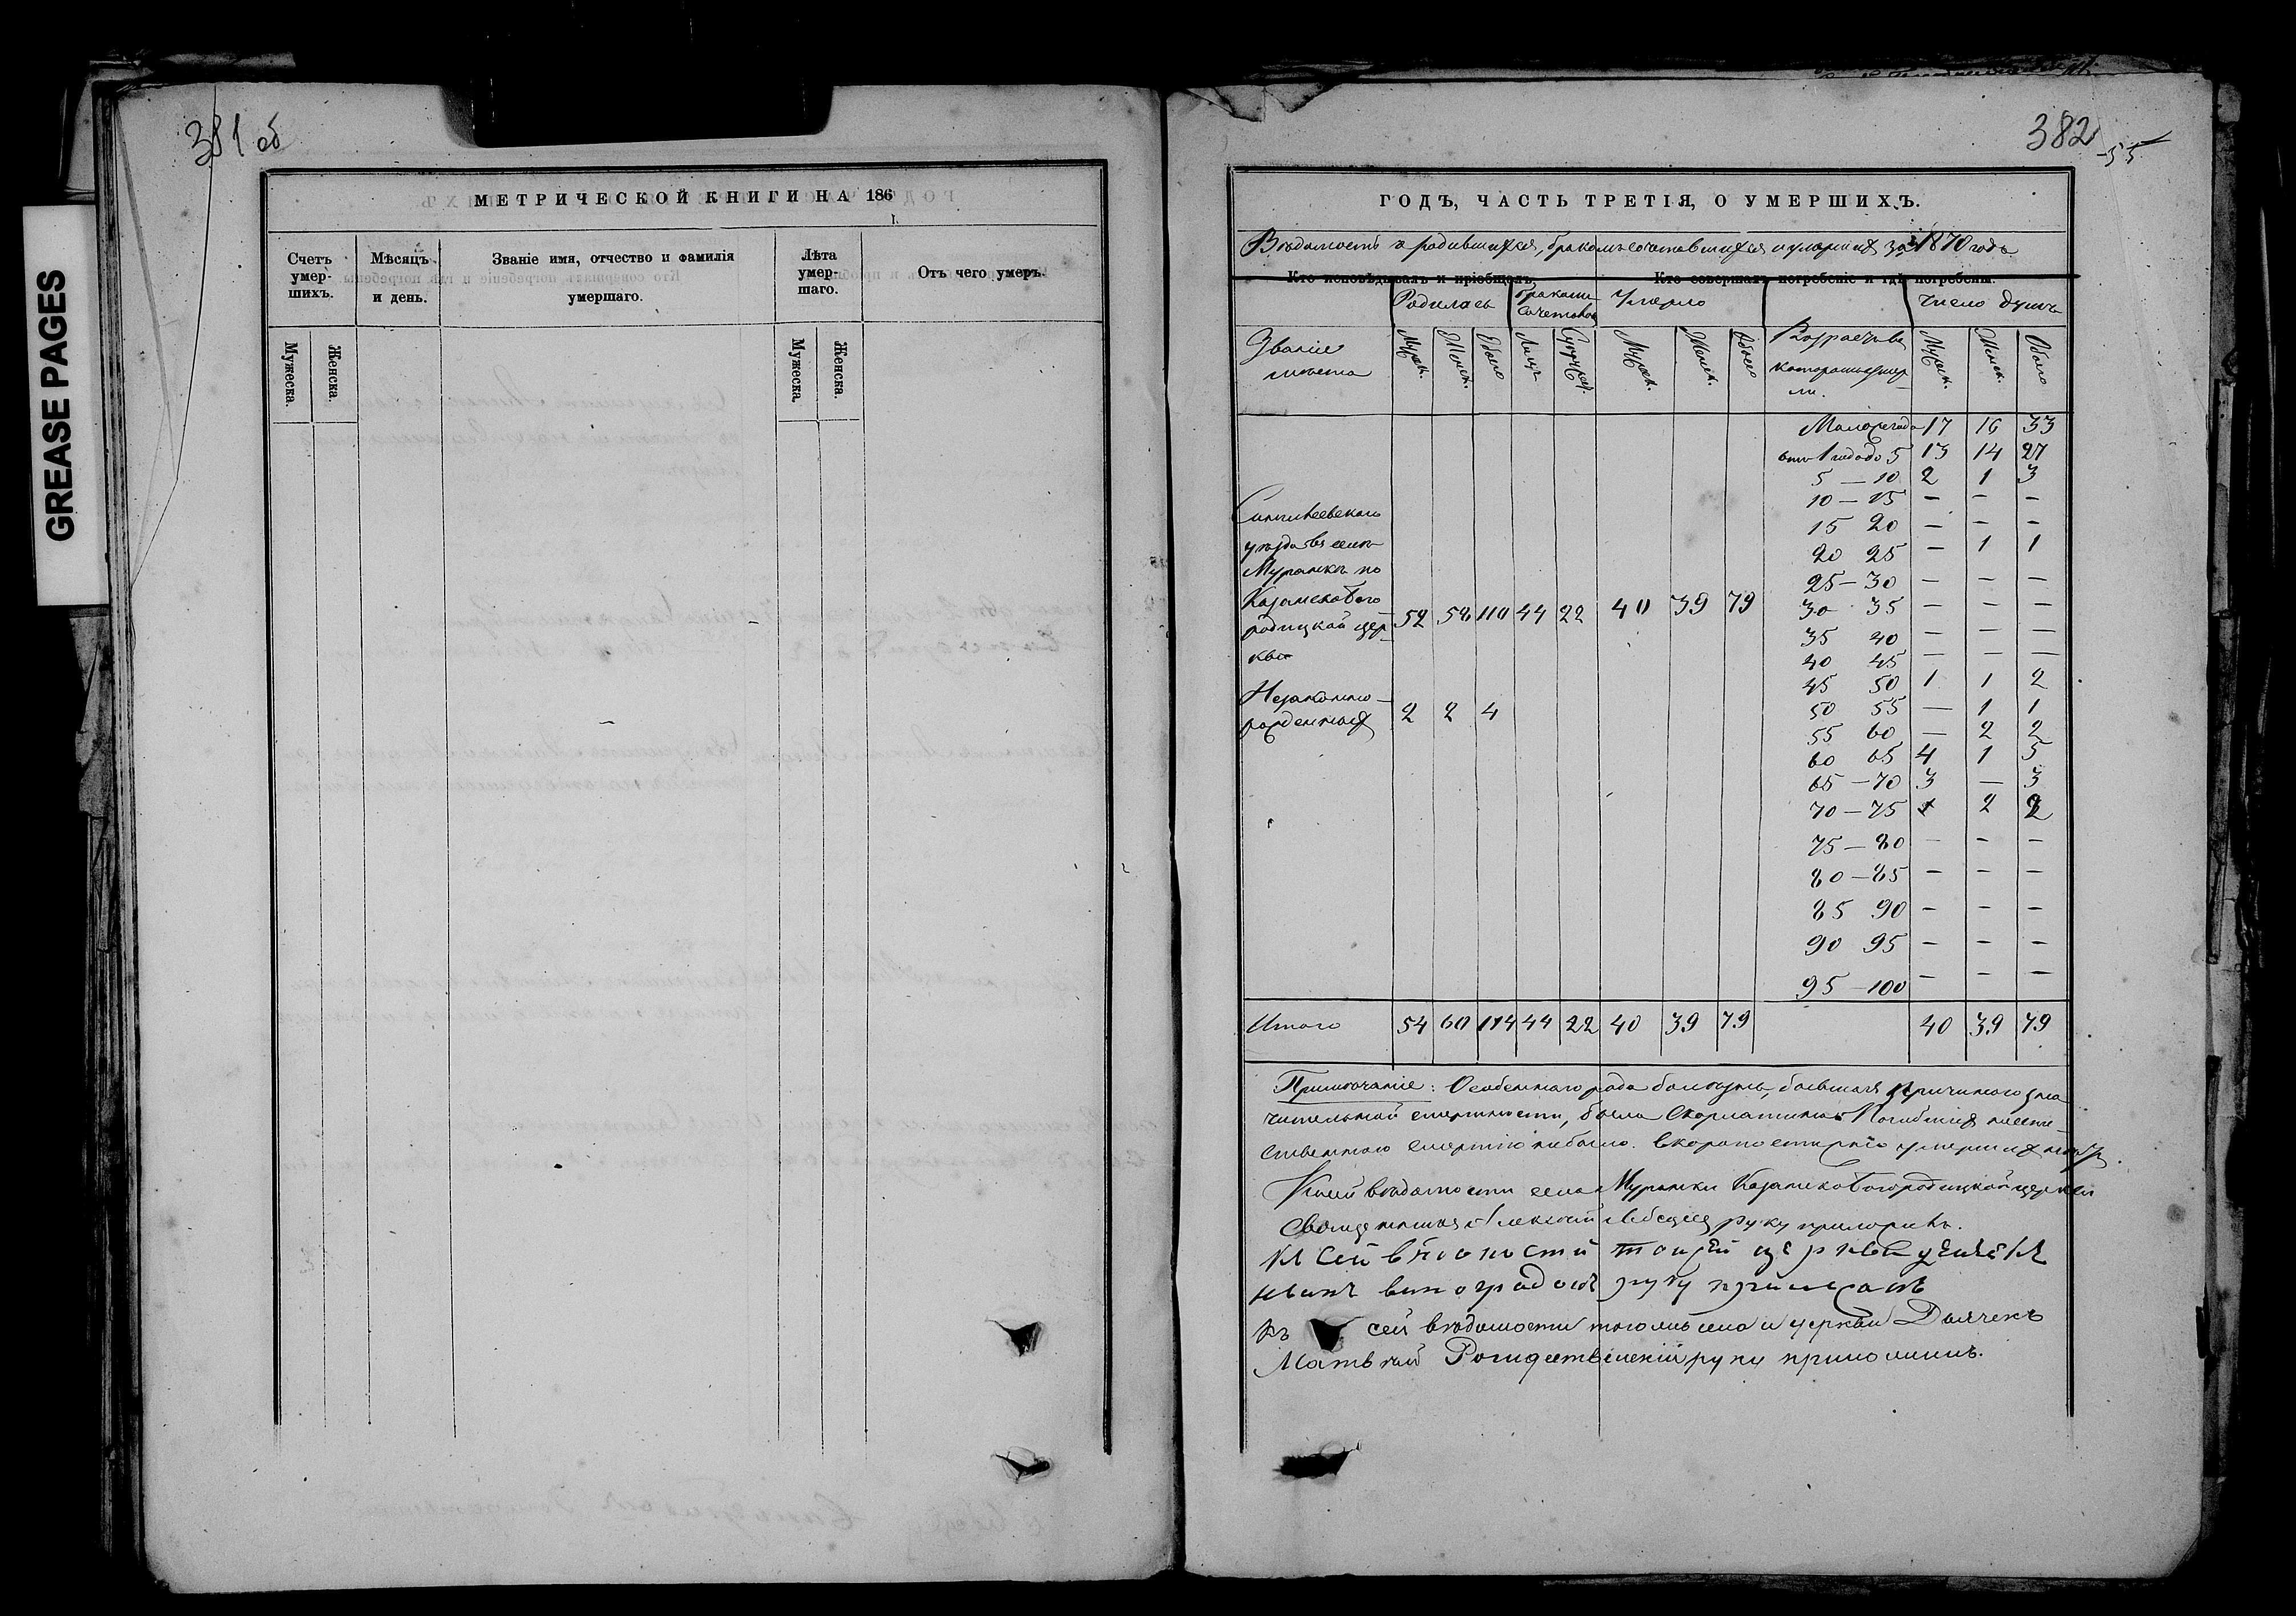 GREASE PAGES
381 об
МЕТРИЧЕСКОЙ КНИГИ НА 186
Счетъ умер-шихъ.
Мѣсяцъ и день.
Званіе имя, отчество и фамилія умершаго.
Лѣта умер-шаго.
Отъ чего умеръ.
Мужеска.
Женска.
Мужеска.
Женска.
382
55
ГОДЪ, ЧАСТЬ ТРЕТІЯ, О УМЕРШИХЪ.
Вѣдомость о родившихся, бракомъ сочетавшихся и умершихъ за 1870 годъ
Кто исповѣдывалъ и пріобщалъ.
Кто совершалъ погребеніе и гдѣ погребены.
Родилась
Умерло
Число душъ
Званіе мѣста
Мужск. Женск. Обоего
Лицъ
Мужск. Женск. Обоего
Мужск. Женск. Обоего
17 16 33
отъ 1 года до 5 13 14 27
5 — 10 2 1 3
10 — 15 — — —
15 20 — — —
20 25 — 1 1
25 — 30 — — —
30 35 — — —
35 40 — — —
40 45 — — —
45 50 1 1 2
50 55 — 1 1
55 60 — 2 2
60 65 4 1 5
65 — 70 3 — 3
70 — 75 2 2
75 — 80 — — —
80 — 85 — — —
85 90 — — —
90 95 — — —
95 — 100 — — —
уѣзда въ селѣ
Муранкѣ по
Казанско Бого
родицкой цер-
кви
52 58 110 44 22 40 39 79
Незаконно-
рожденныхъ 2 2 4
Итого 54 60 114 44 22 40 39 79 40 39 79
Примѣчаніе: Особеннаго рода болѣзнь, бывшая причиною зна
чительной смертности, была Скарлатина. Погибшихъ неесте-
ственною смертію не было. Скоропостижно умершихъ
Къ сей вѣдомости села Муранки Казанско Богородицкой церкви
Священникъ Алексей Лебедевъ руку приложилъ.
Къ сей той церкви
Иванъ Виноградовъ руку приложилъ
Къ сей вѣдомости тогожъ села и церкви Дьячекъ
Матвѣй Рождественскій руку приложилъ.